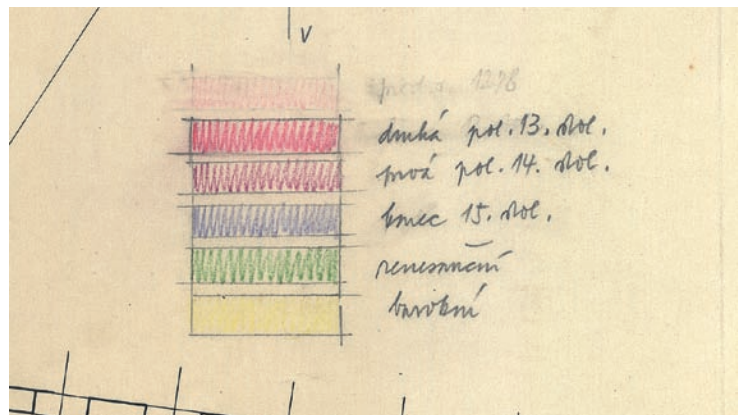 V
1278
druhá pol. 13. stol.
prvá pol. 14. stol.
konec 15. stol.
renesanční
barokní